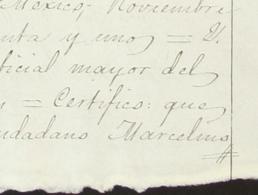 Mexico, Noviembre
y unos = El
oficial mayor del
= Certifico: que
ciudadano Marcelino